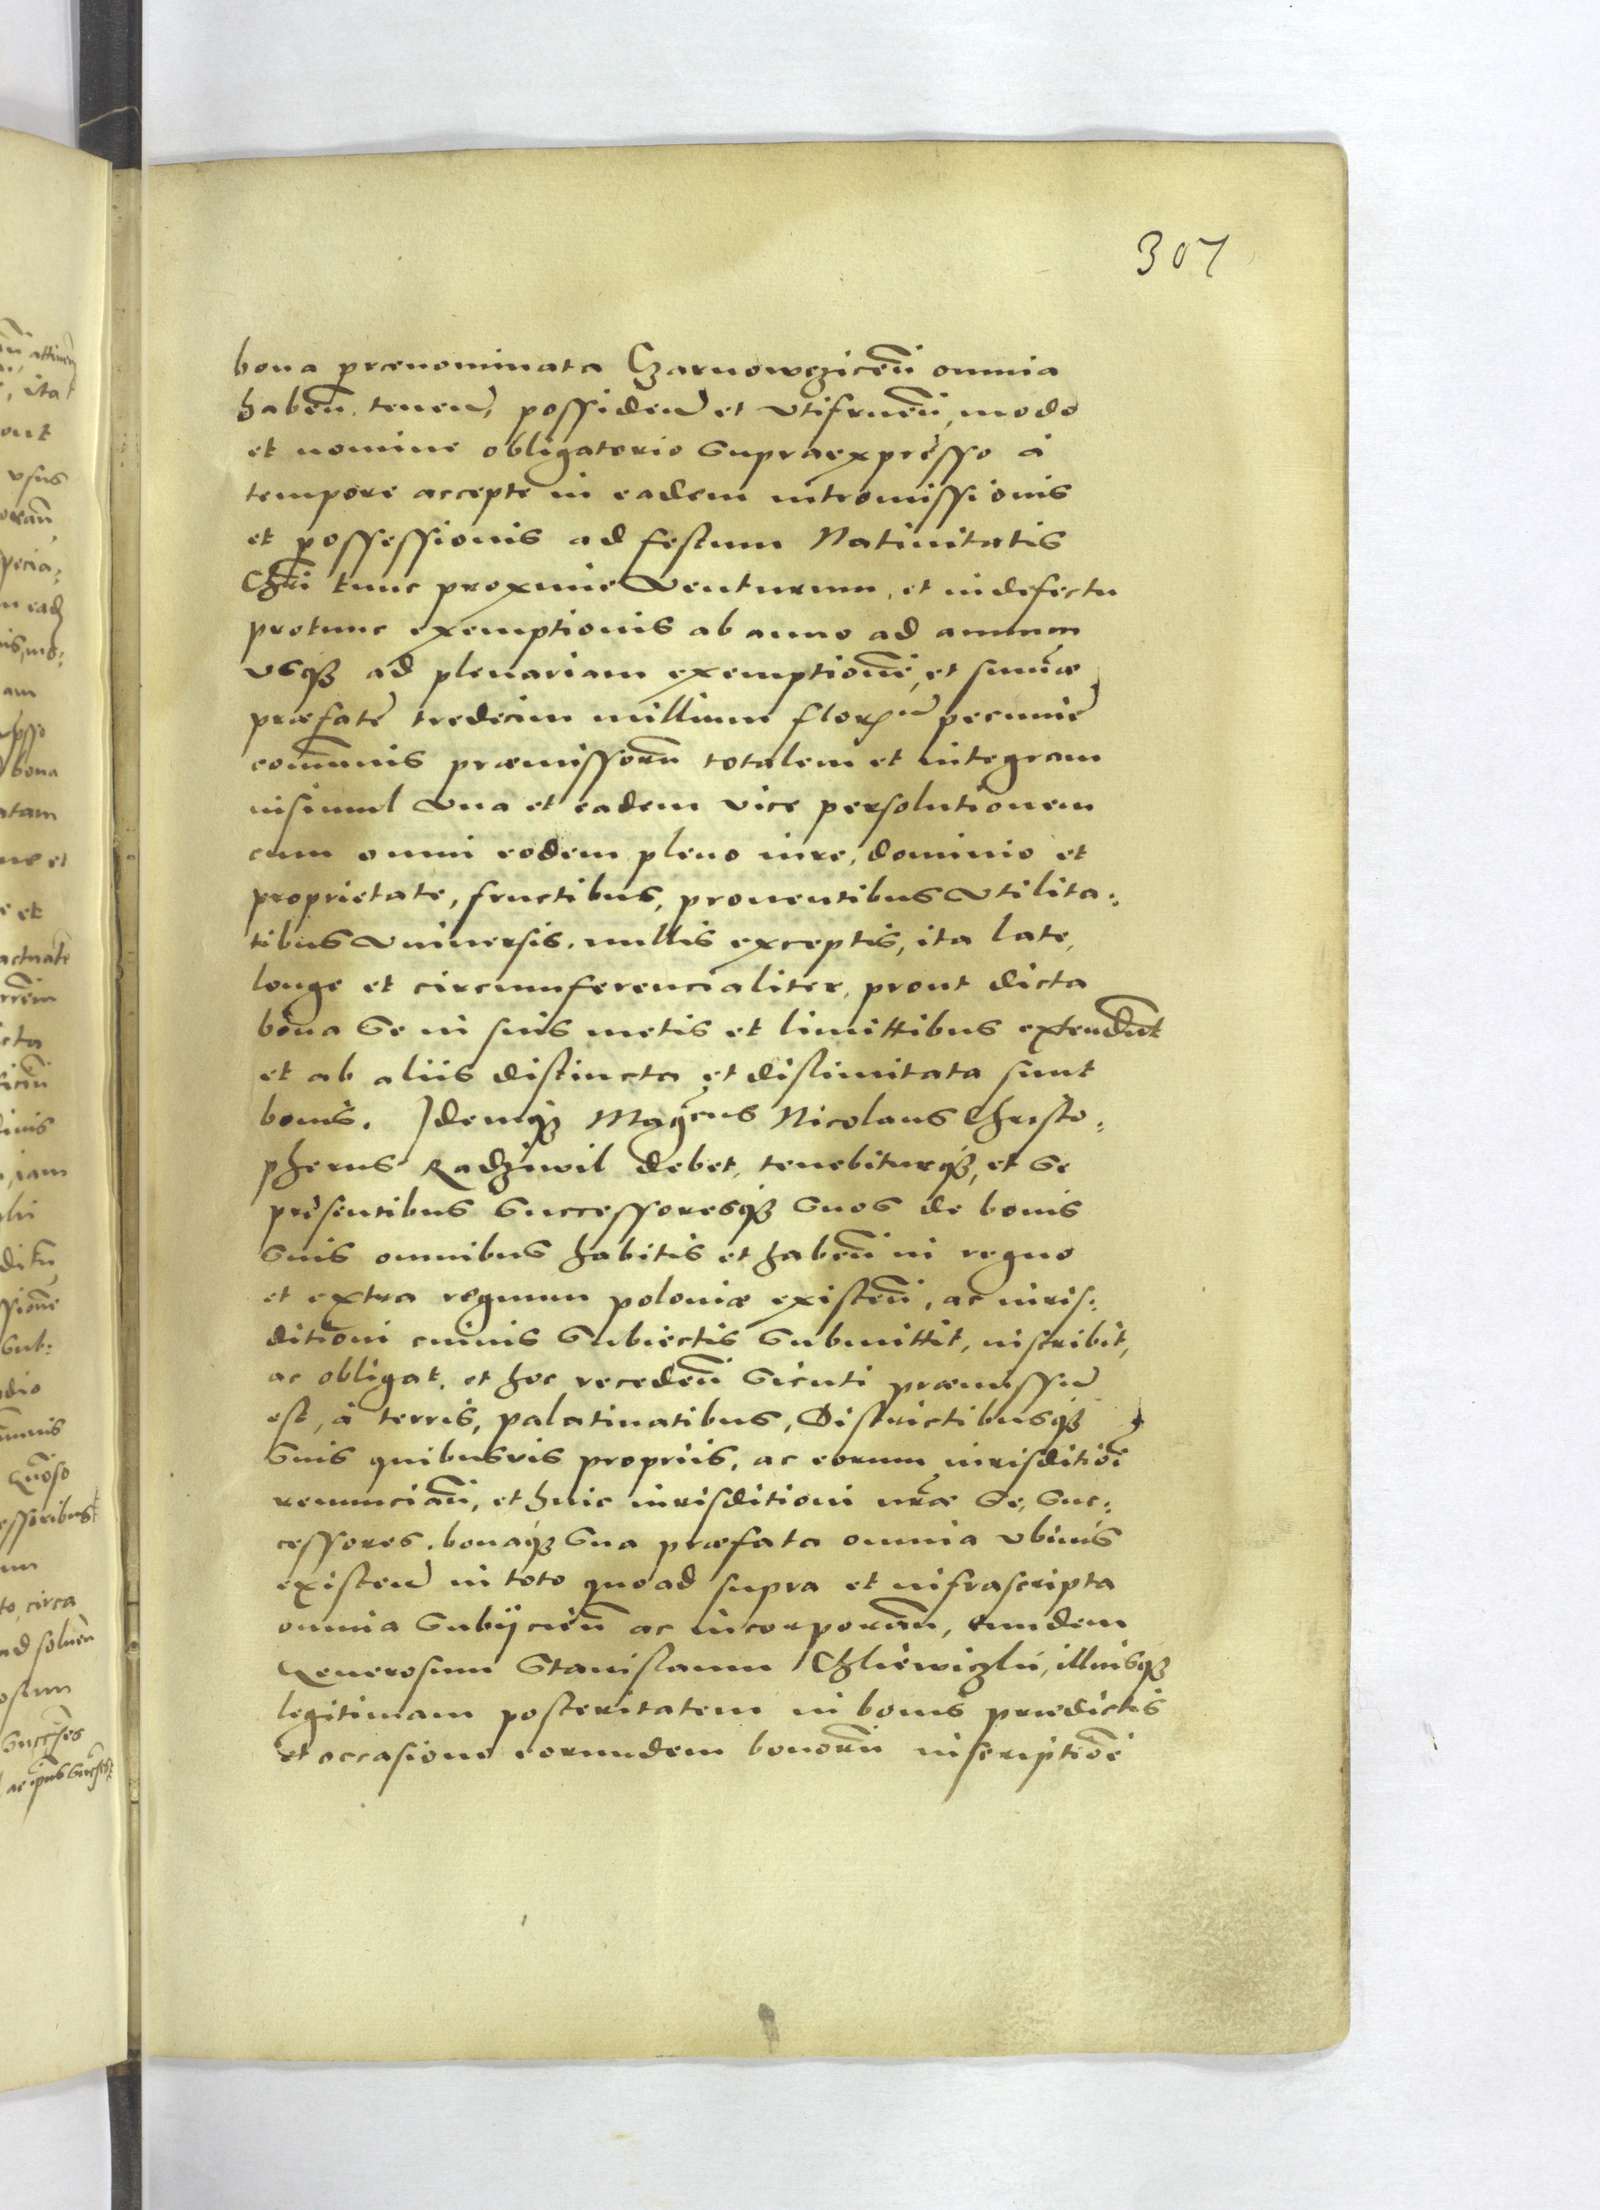 307
bona prænominata Czarnowcziceñ omnia
habeñ. teneñ, possideñ et vtifrueñ, modo
et nomine obligatorio supraexpresso à
tempore accepte in eadem intromissionis
et possessionis ad festum Natiuitatis
Chri tunc proxime venturum, et in defectu
protunc exemptionis ab anno ad annum
vsqꝫ ad plenariam exemptionē, et sum̃æ
præfate tredecim millium florꝵ pecunie
com̃unis præmissorū totalem et integram
insimul vna et eadem vice persolutionem
cum omni eodem pleno iure, dominio et
proprietate, fructibus, prouentibus vtilita:
tibus vniuersis. nullis exceptis, ita late,
longe et circumferencialiter, prout dicta
bona se in suis metis et limittibus extendūt
et ab aliis distincta et dislimitata sunt
bonis. Idemqꝫ Mag̃cus Nicolaus Christo:
pherus Radziwil debet, tenebiturqꝫ, et se
presentibus successoresqꝫ suos de bonis
suis omnibus habitis et habeñ in regno
et extra regnum poloniæ existeñ, ac iuris:
ditioni cuiuis subiectis submittit, inscribit,
ac obligat, et hoc recedeñ sicuti præmissū
est, à terris, palatinatibus, Districtibusqꝫ
suis quibusvis propriis, ac eorum iurisditiōi
renunciañ, et huic iurisditioni nr̃æ se, suc:
cessores, bonaqꝫ sua præfata omnia vbiuis
existeñ in toto quoad supra et infrascripta
omnia subijcieñ ac incorporañ, eundem
Generosum Stanislaum Chliewiczki, illiusqꝫ
legitimam posteritatem in bonis prædictis
et occasione eorundem bonorū inscriptiōe